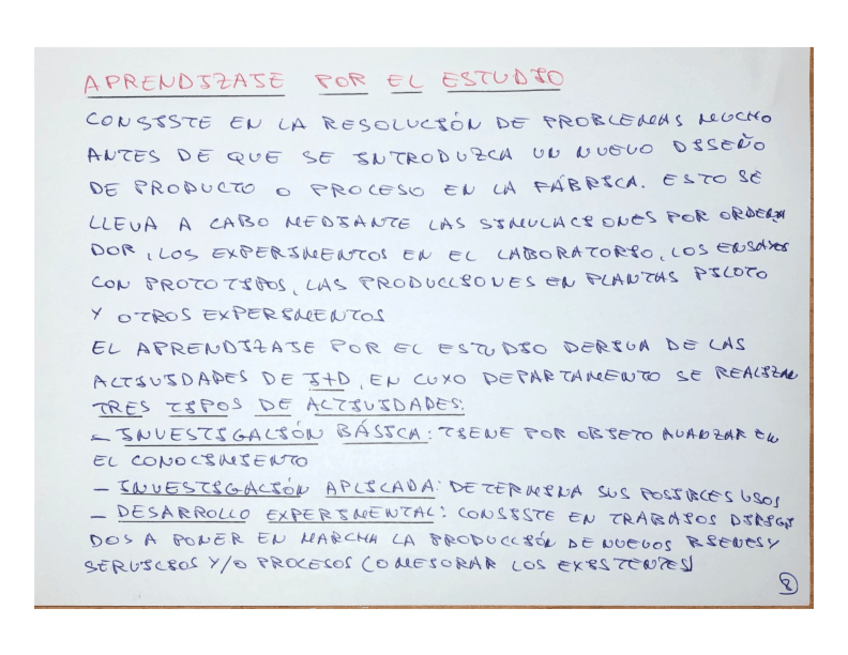 APRENDIZAJE POR EL ESTUDIO
CONSISTE EN LA RESOLUCIÓN DE PROBLEMAS MUCHO
ANTES DE QUE SE INTRODUZCA UN NUEVO DISEÑO
DE PRODUCTO O PROCESO EN LA FÁBRICA. ESTO SE
LLEVA A CABO MEDIANTE LAS SIMULACIONES POR ORDENA
DOR, LOS EXPERIMENTOS EN EL LABORATORIO, LOS ENSAYOS
CON PROTOTIPOS, LAS PRODUCCIONES EN PLANTAS PILOTO
Y OTROS EXPERIMENTOS
EL APRENDIZAJE POR EL ESTUDIO DERIVA DE LAS
ACTIVIDADES DE I+D, EN CUYO DEPARTAMENTO SE REALIZAN
TRES TIPOS DE ACTIVIDADES:
- INVESTIGACIÓN BÁSICA: TIENE POR OBJETO AVANZAR EN
EL CONOCIMIENTO
- INVESTIGACIÓN APLICADA: DETERMINA SUS POSIBLES USOS
- DESARROLLO EXPERIMENTAL: CONSISTE EN TRABAJOS DIRIGI
DOS A PONER EN MARCHA LA PRODUCCIÓN DE NUEVOS BIENES Y
SERVICIOS Y/O PROCESOS (O MEJORAR LOS EXISTENTES)
8